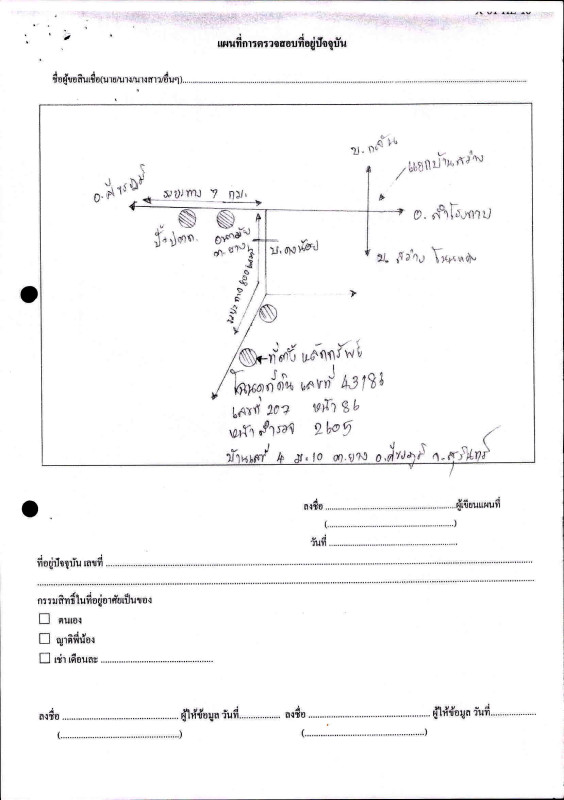 แผนที่การตรวจสอบที่อยู่ปัจจุบัน
ชื่อผู้ขอสินเชื่อ(นาย/นาง/นางสาว/อื่นๆ)
อ.ศีขรภูมิ
ระยะทาง 7 กม.
แยกบ้านสว่าง
อ. สำโรงทาบ
ต.ยาง
บ.ดงน้อย
ที่ตั้ง หลักทรัพย์
โฉนดที่ดิน เลขที่ 43186
เลขที่ 207 หน้า 86
หน้าสำรวจ 2605
บ้านเลขที่ 4 ม.10 ต.ยาง อ.ศีขรภูมิ จ.สุรินทร์
ลงชื่อ ผู้เขียนแผนที่
( )
วันที่
ที่อยู่ปัจจุบัน เลขที่
กรรมสิทธิ์ในที่อยู่อาศัยเป็นของ
ตนเอง
ญาติพี่น้อง
เช่า เดือนละ
ลงชื่อ ผู้ให้ข้อมูล วันที่ ลงชื่อ ผู้ให้ข้อมูล วันที่
( ) ( )